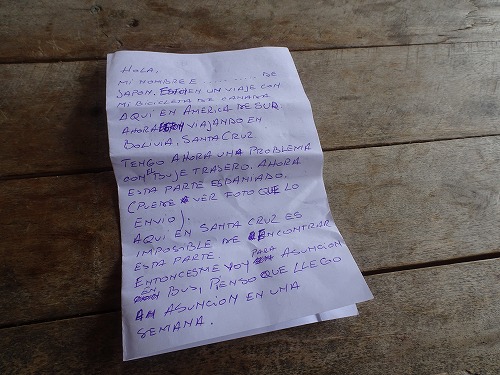 HOLA,
MI NOMBRE E DE
JAPON. ESTOY EN UN VIAJE CON
MI BICICLETA DE CANADA
AQUI EN AMERICA DE SUR.
AHORA VIAJANDO EN
BOLIVIA, SANTA CRUZ
TENGO AHORA UNA PROBLEMA
CON EL BUJE TRASERO. AHORA
ESTA PARTE ESDANIADO.
(PUEDE VER FOTO QUE LO
ENVIO).
AQUI EN SANTA CRUZ ES
IMPOSIBLE DE ENCONTRAR
ESTA PARTE.
ENTONCESME VOY PARA ASUNCION
EN BUS, PIENSO QUE LLEGO
ASUNCION EN UNA
SEMANA.